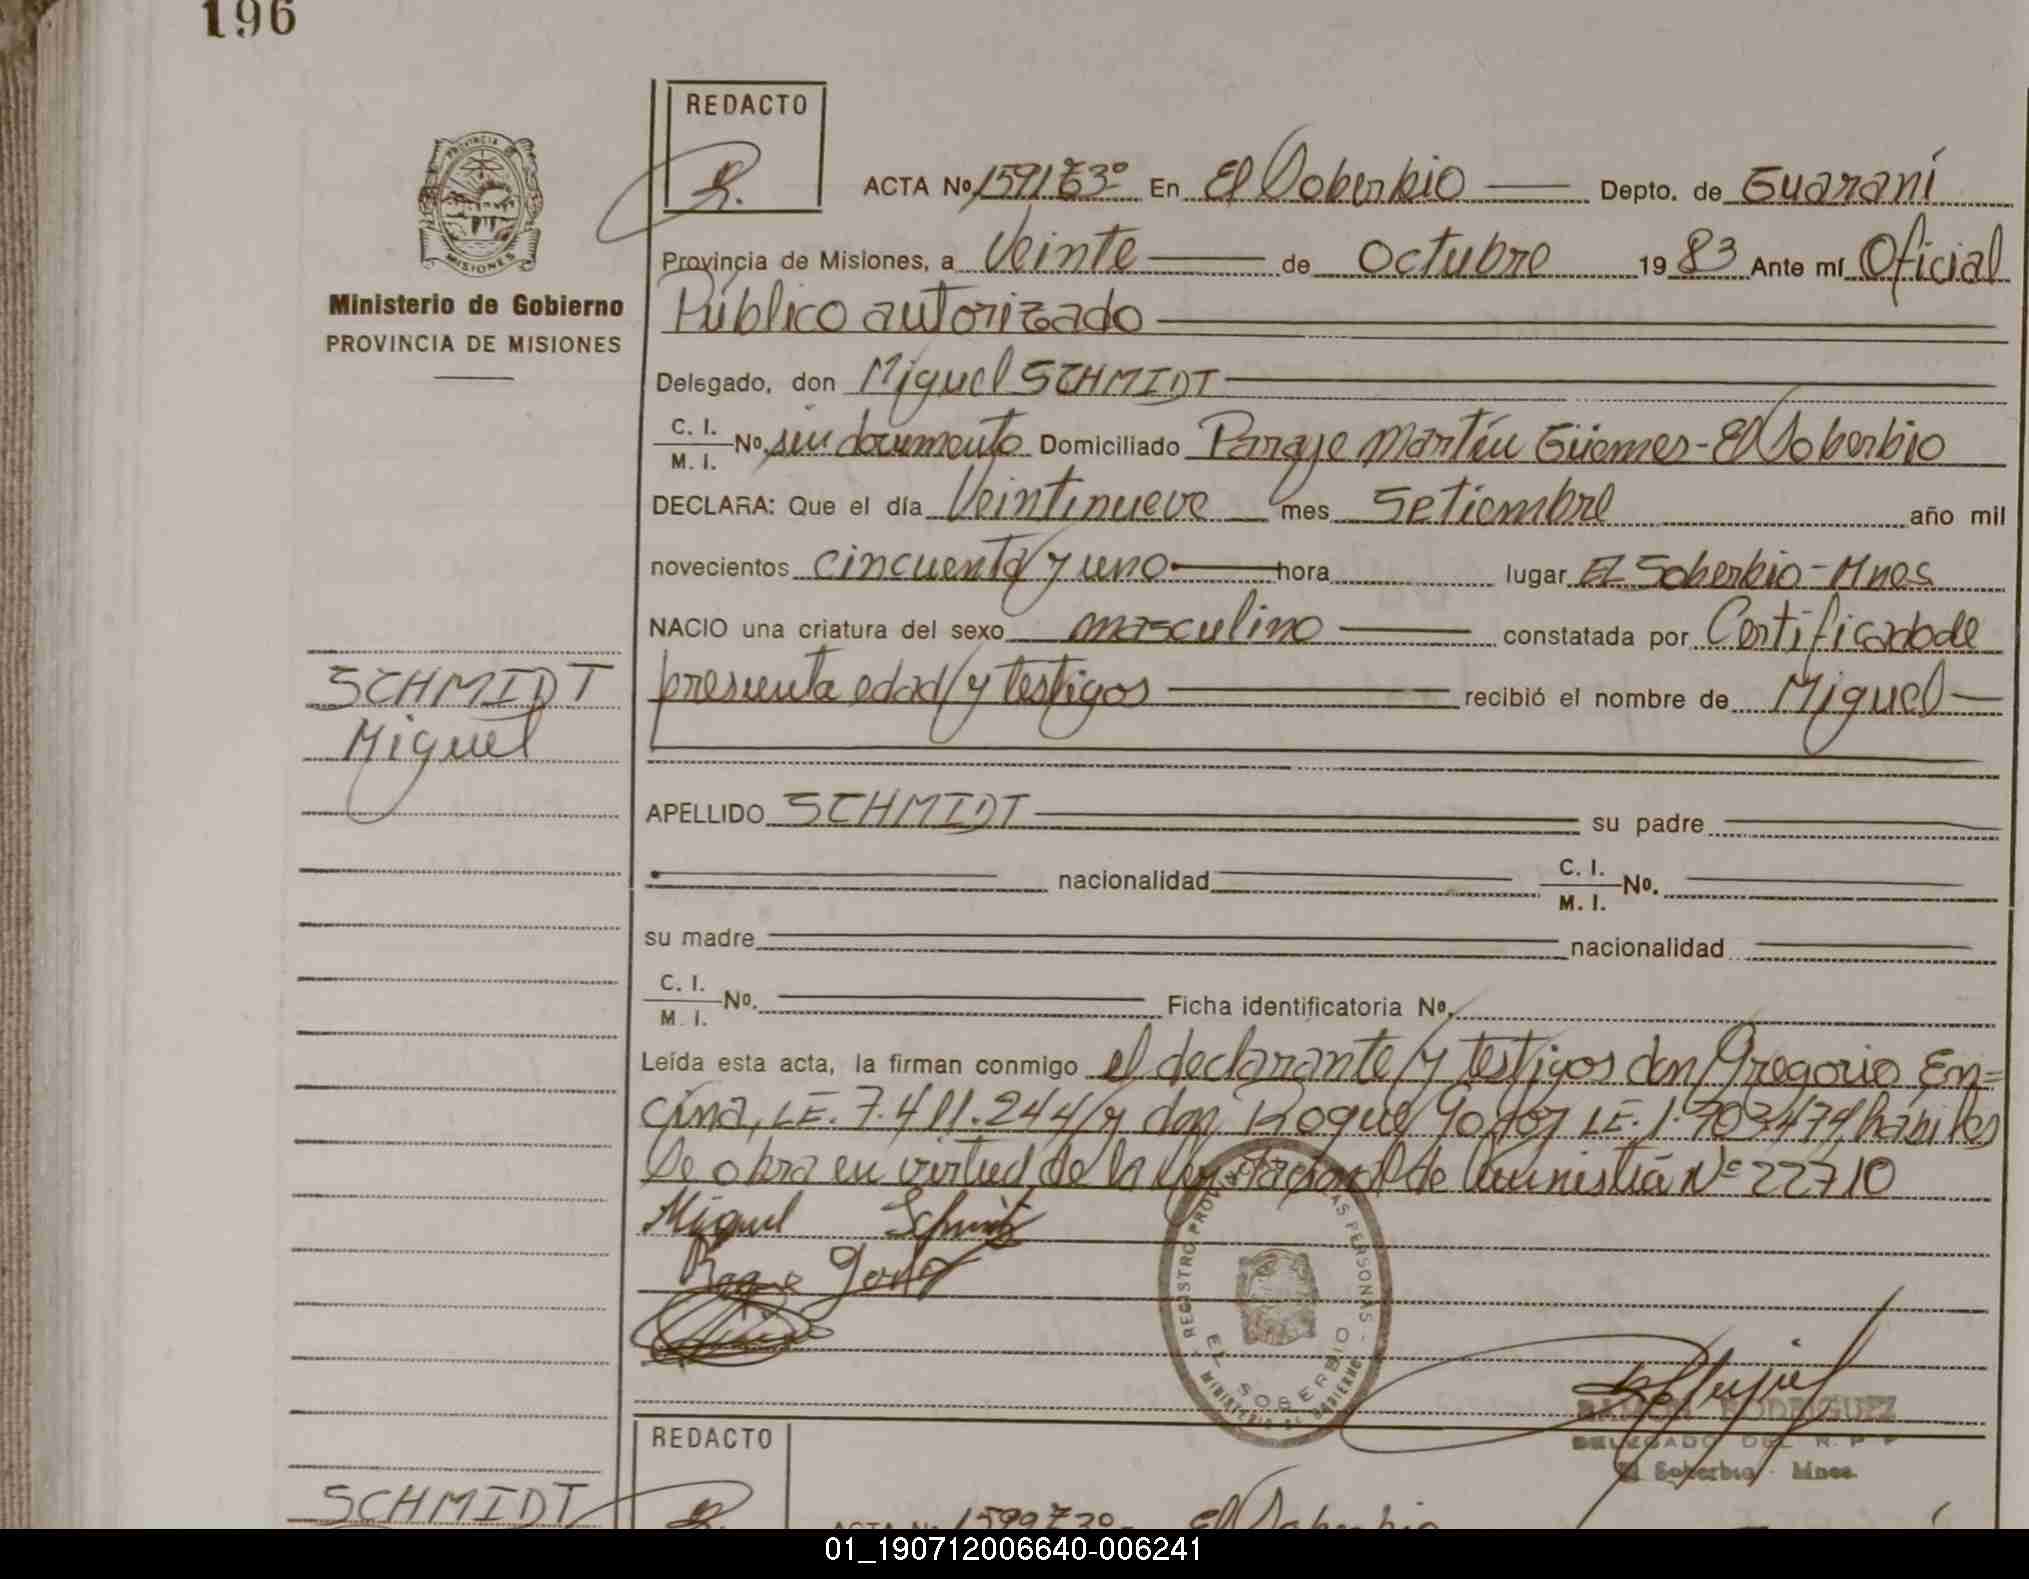 196
REDACTO
ACTA Nº 1591 T3º En El Soberbio Depto. de Guaraní
Provincia de Misiones, a Veinte de Octubre 1983 Ante mí Oficial
Público autorizado
PROVINCIA DE
MISIONES
Ministerio de Gobierno
PROVINCIA DE MISIONES
Delegado, don Miguel SCHMIDT
C. I.
M. I. Nº. sin documento Domiciliado Paraje Martín Güemes - El Soberbio
DECLARA: Que el día Veintinueve mes Setiembre año mil
novecientos cincuenta y uno hora lugar El Soberbio - Mnes
NACIO una criatura del sexo masculino constatada por Certificado de
presunta edad y testigos recibió el nombre de Miguel
SCHMIDT
Miguel
APELLIDO SCHMIDT su padre
nacionalidad C. I.
M. I. Nº.
su madre nacionalidad
C. I.
M. I. Nº. Ficha identificatoria Nº.
Leída esta acta, la firman conmigo el declarante y testigos don Gregorio En=
cina, LE. 7.411.244 y don Roque LE. hábiles
Se obra en virtud de la Ley Nacional de Nº 22710
Miguel Schmit
Roque
REGISTRO PROVINCIAL DE LAS PERSONAS -
EL SOBERBIO
MINISTERIO DE GOBIERNO
RAMON RODRIGUEZ
DELEGADO DEL R. P. P
El Soberbio - Mnes.
REDACTO
SCHMIDT
ACTA Nº 1599 T3º El Soberbio
01_190712006640-006241